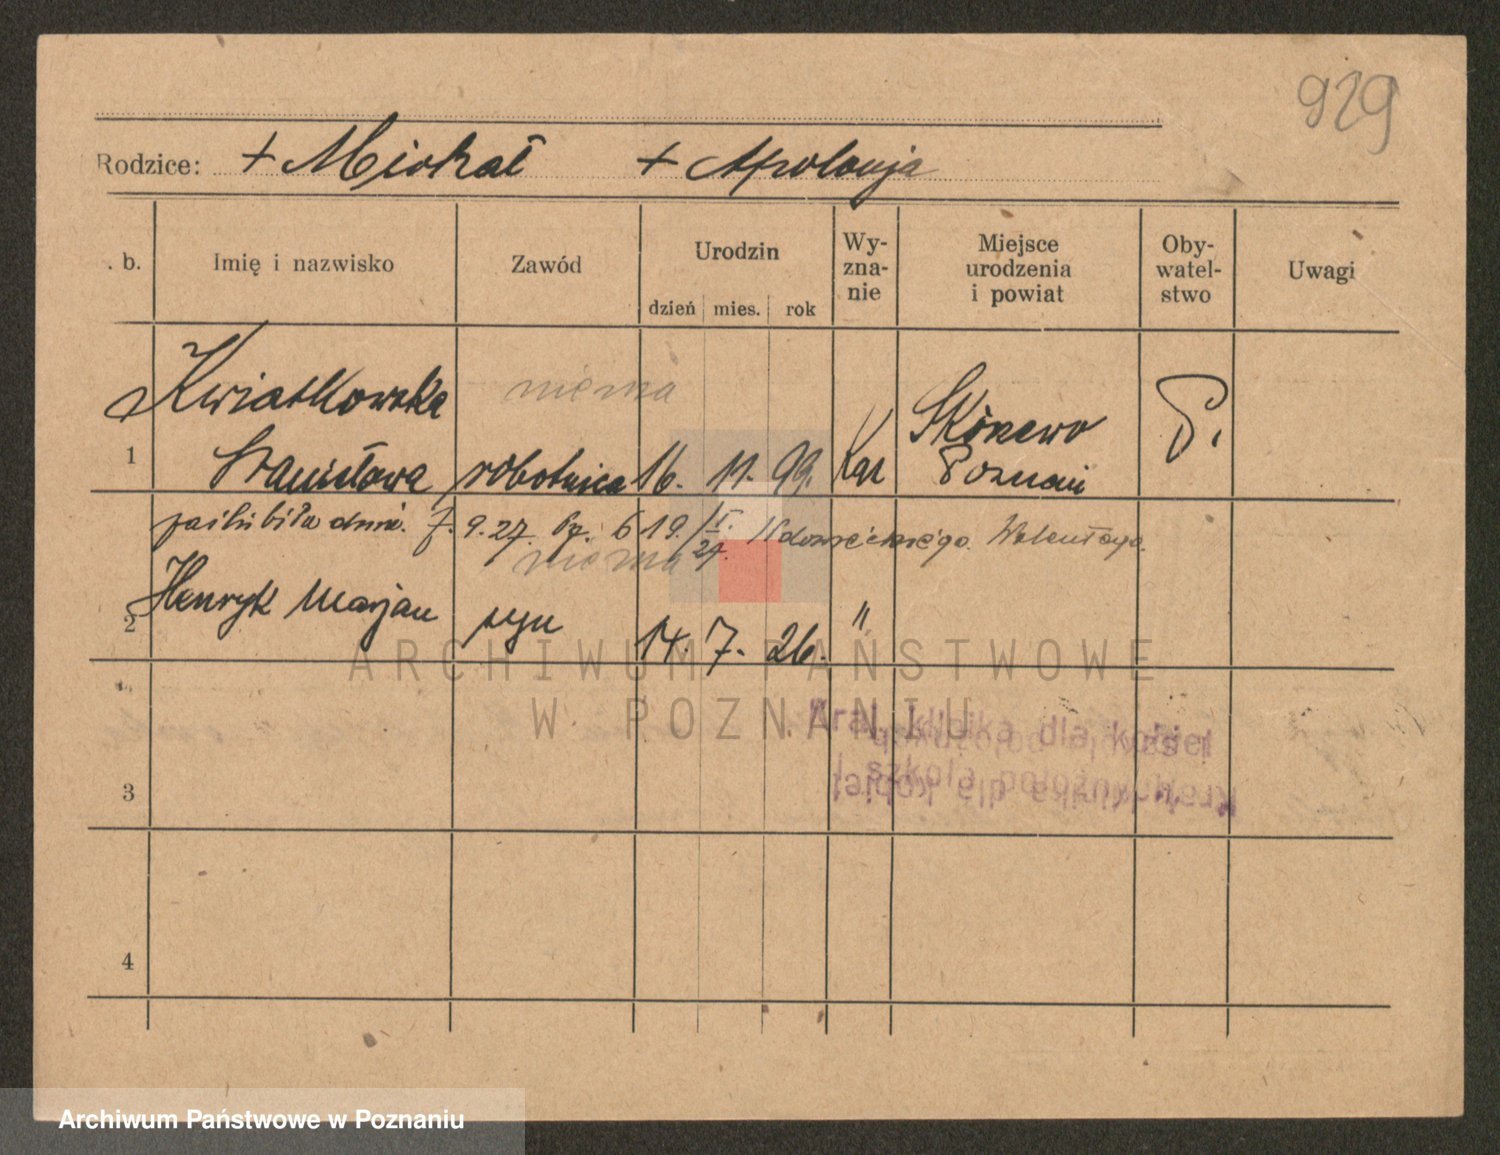 929
Rodzice: + Michał + Apolonja
. b. Imię i nazwisko Zawód Urodzin dzień mies. rok Wy-zna-nie Miejsce urodzenia i powiat Oby-watel-stwo Uwagi
Kwiatkowska niema
1 Stanisława robotnica 16. 11. 99. Kat Skórzewo Poznań P.
zaślubiła dnia 7. 9. 27. 619 / I. 27. Walentego.
niema
2 Henryk Marjan syn 14. 7. 26. "
ARCHIWUM PAŃSTWOWE
W POZNANIU
Kraj. klinika dla kobiet
i szkoła położnych
Kraj. klinika dla kobiet
3
4
Archiwum Państwowe w Poznaniu